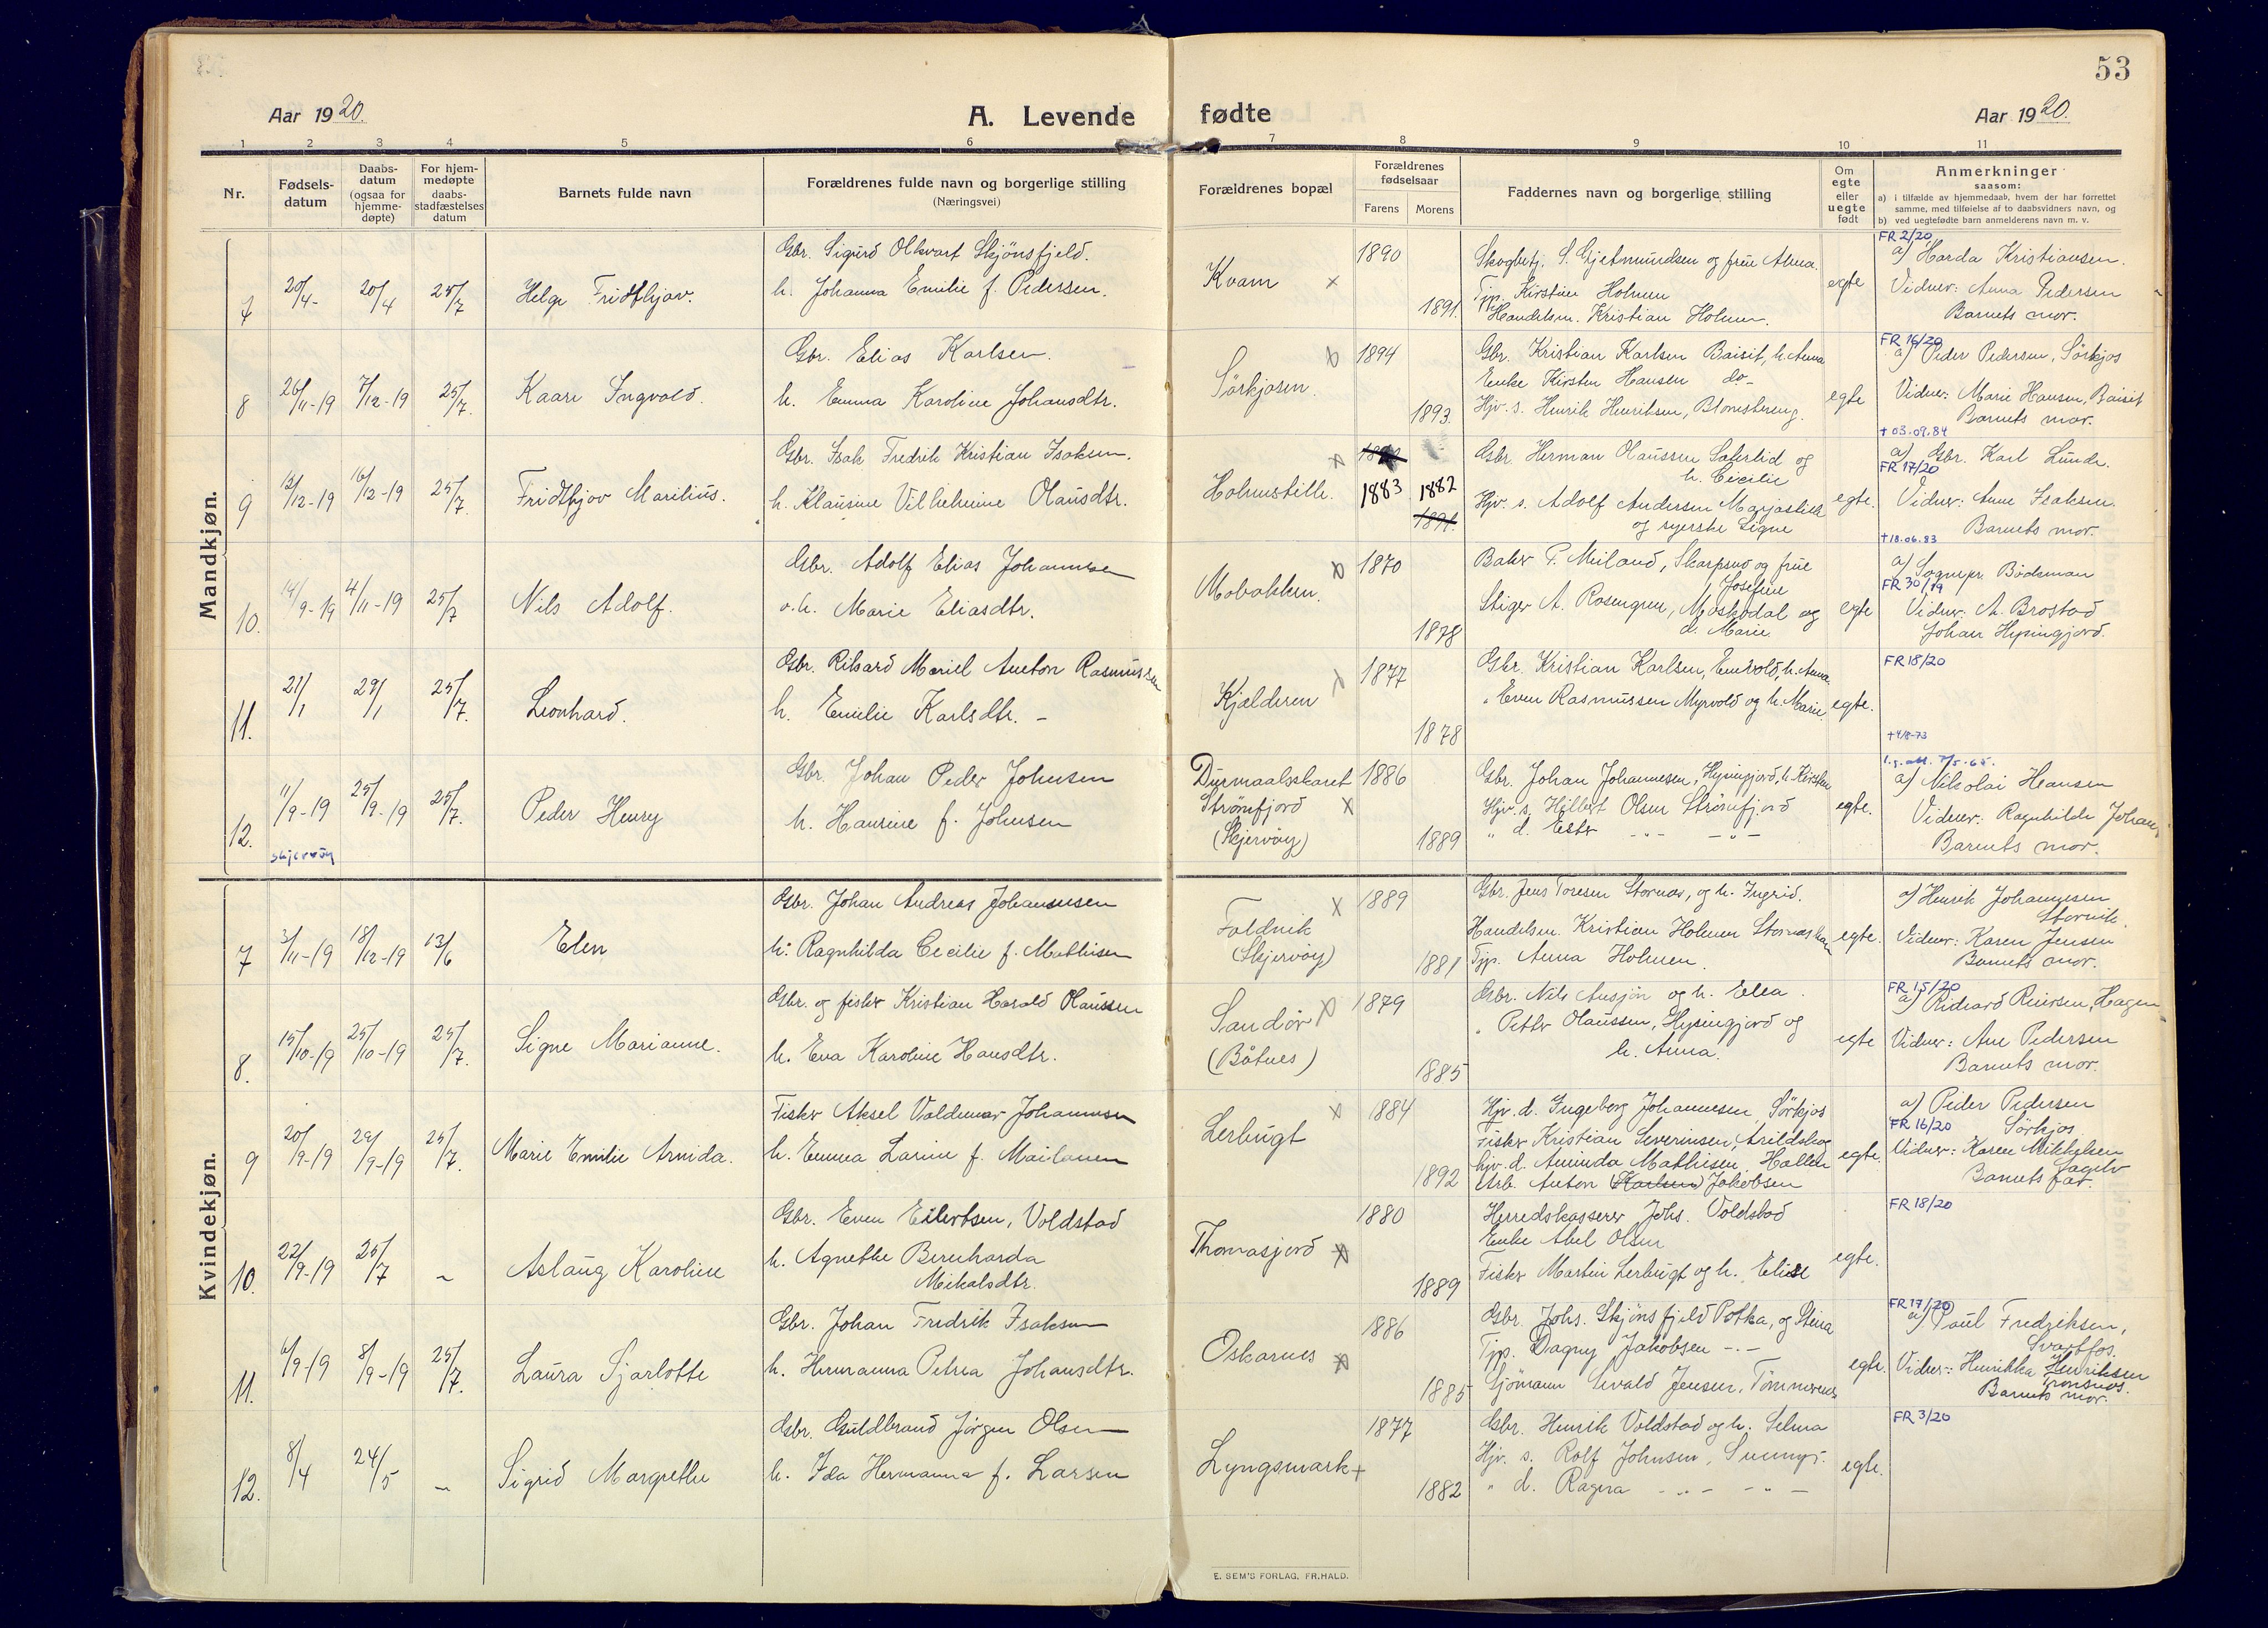 53
Aar 1920.
A. Levende
fødte
Aar 1920.
1 2 3 4 5 6 7 8 9 10 11
Nr.
Fødsels-
datum
Daabs-
datum
(ogsaa for
hjemme-
døpte)
For hjem-
medøpte
daabs-
stadfæstelses
datum
Barnets fulde navn
Forældrenes fulde navn og borgerlige stilling
(Næringsvei)
Forældrenes bopæl
Forældrenes
fødselsaar
Farens
Morens
Faddernes navn og borgerlige stilling
Om
egte
eller
uegte
født
Anmerkninger
saasom:
a) i tilfælde av hjemmedaab, hvem der har forrettet
samme, med tilføielse af to daabsvidners navn, og
b) ved uegtefødte barn anmelderens navn m. v.
Mandkjøn.
7 20/4- 20/4 25/7 Helge Fridthjov.
Gbr. Sigurd Olkvart Skjønsfjeld.
h. Johanna Emilie f. Pedersen.
Kvam x
1890
1891.
Skogbetj. S. Gjetmundsen og frue Alma.
Tjp. Kirstine Holmen
Handelsm. Kristian Holmen.
egte
FR 2/20
a) Harda Kristiansen.
Vidner: Anna Pedersen
Barnets mor.
8 26/11-19 7/12-19 25/7. Kaare Ingvald.
Gbr. Elias Karlsen.
h. Emma Karoline Johansdtr.
Sørkjosen.
1894
1893.
Gbr. Kristian Karlsen Baisit, h. Anna
Enke Kirsten Hansen do-
Hjv. s. Henrik Henriksen, Blomstereng.
egte
FR 16/20
a) Peder Pedersen, Sörkjos
Vidner: Marie Hansen, Baisit
Barnets mor.
† 03.09.84
9 12/12-19 16/12-19 25/7. Fridthjov Marilius.
Gbr. Isak Fredrik Kristian Isaksen.
h. Klausine Vilhelmine Olausdtr.
Holmstille.
1883 1882
1891.
Gbr. Herman Olaussen Sakrlid og
h. Cecilie
Hjv. s. Adolf Andersen Marjaslick
og syerske Signe
egte.
a) Gbr. Karl Lunde.
FR 17/20
Vidner: Anne Isaksen.
Barnets mor.
† 18.06.83
10. 14/9-19 4/11-19 25/7 Nils Adolf.
Gbr. Adolf Elias Johannesen
o.h. Marie Eliasdtr.
Mobakken.
1870
1878
Baker P. Meiland, Skarpsno og frue
Josefine
Stiger A. Rosengren, Moskodal og
d. Marie
egte
a) Sognepr. Bodsman
FR 30/19
Vidner: A. Brostad
Johan Hysingjord.
11. 21/1 29/1 25/7. Leonhard.
Gbr. Rikard Mariel Aneton Rasmussen
h. Emilie Karlsdtr. -
Kjelderen
1877
1878
Gbr. Kristian Karlsen, Einevold, h. Anna.
" Even Rasmussen Myrvold og h. Marie
egte.
FR 18/20
† 4/8-73
12. 11/9-19 25/9-19 25/7. Peder Henry
skjervøy
Gbr. Johan Peder Johnsen
h. Hansine f. Johnsen
Durmaalsskaret
Strømfjord x
(Skjervøy)
1886
1889
Gbr. Johan Johannesen, Hysingjord, h. Kirsten
Hjv. s. Hilbert Olsen Strømfjord
" d. Ester - " - - " -
egte.
l.g. att. 7/5-65.
a) Nikolai Hansen
Vidner: Ragnhilda Johan
Barnets mor.
Kvindekjøn.
7 3/11-19 18/12-19 13/6 Elen
Gbr. Johan Andreas Johannesen
h: Ragnhilda Cecilie f. Mathisen
Foldvik x
(Skjervøy)
1889
1881
Gbr. Jens Toresen Stornæs, og h. Ingrid.
Handelsm. Kristian Holmen
Tjp. Anna Holmen.
egte.
a) Henrik Johannesen
Storvik.
Vidner: Karen Jensen
Barnets mor.
8. 15/10-19 25/10-19 25/7. Signe Marianne.
Gbr. og fisker Kristian Harald Olaussen
h. Eva Karoline Hansdtr.
Sandør
(Båtnes)
1879
1885
Gbr. Nils Ansjøn og h. Ellea.
" Petter Olaussen, Hysingjord og
h. Anna.
egte
FR 15/20
a) Rickard Reiersen, Hagen
Vidner: Ane Pedersen
Barnets mor.
9 20/9-19 29/9-19 25/7. Marie Emilie Arnida.
Fisker Aksel Valdemar Johannesen
h. Emma Larine f. Mailanen
Lerbugt
1884
1892
Hjv. d. Ingeborg Johannesen Sörkjos
Fisker Kristian Severinsen, Arildskog
hjv. d. Aminda Mathisen, Hallen
Arb. Anton Karlsen Jakobsen
egte.
a) Peder Pedersen
FR 16/20 Sørkjos
Vidner: Karen Mikkelsen
Sagelv
Barnets far.
10. 22/9-19 25/7 ~ Aslaug Karoline
Gbr. Even Eilertsen, Voldstad
h. Agnethe Bernharda
Mikalsdtr.
Thomasjord
1880
1889
Herredskasserer Johs. Voldstad
Enke Abel Olsen
Fisker Martin Lerbugt og h. Elise
egte.
FR 18/20
11. 6/9-19 8/9-19 25/7. Laura Sjarlotte
Gbr. Johan Fredrik Isaksen
h. Hermanna Petrea Johansdtr.
Oskarnes
1886
1885
Gbr. Johs. Skjönsfjeld Potka, og Stina
Tjp. Dagny Jakobsen -.-
Sjömann Sivald Jensen, Tömmernes
egte.
FR 17/20
a) Paul Fredriksen,
Svartfos.
Vidner: Henrikka Henriksen
Barnets mor.
12. 8/4 24/5 ~ Sigrid Margrethe
Gbr. Guldbrand Jörgen Olsen
h. Ida Hermanna f. Larsen
Lyngsmark +
1877
1882
Gbr. Henrik Voldstad og h. Selma
Hjv. s. Rolf Johnsen,
" d. Ragna - " - - " -
egte.
FR 3/20
E. SEM'S FORLAG, FR.HALD.